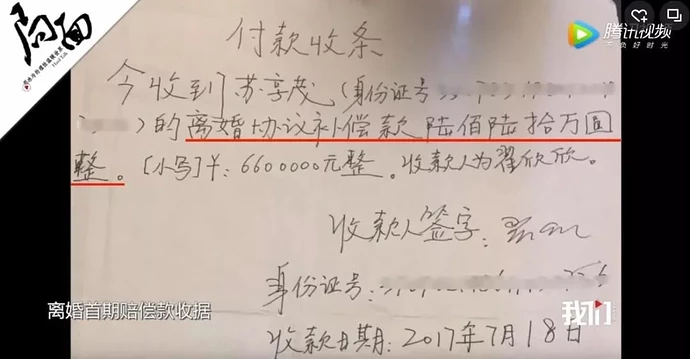 局面
腾讯视频
不负好时光
付款收条
今收到苏享茂（身份证号
）的离婚协议补偿款陆佰陆拾万圆
整。[小写]￥：6600000元整。收款人为翟欣欣。
收款人签字：
身份证号：
离婚首期赔偿款收据
我们
收款日期：2017年7月18日